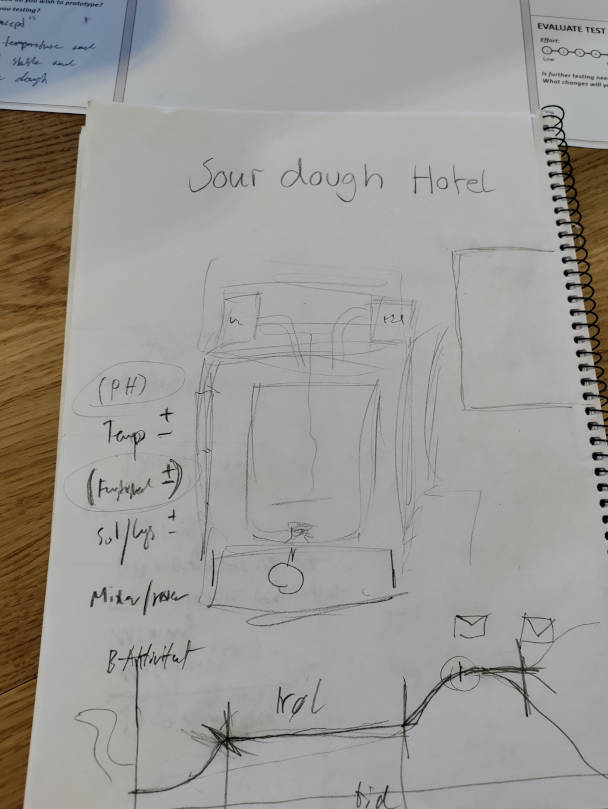 you wish to prototype?
you testing?
temperature and
stable and
dough
EVALUATE TEST
Effort:
Low
Is further testing nee
What changes will yo
Sour dough Hotel
(PH)
Temp + -
(Fugtighed + -)
Sol/Lys + -
Mixer/rører
B-Aktivitet
køl
tid